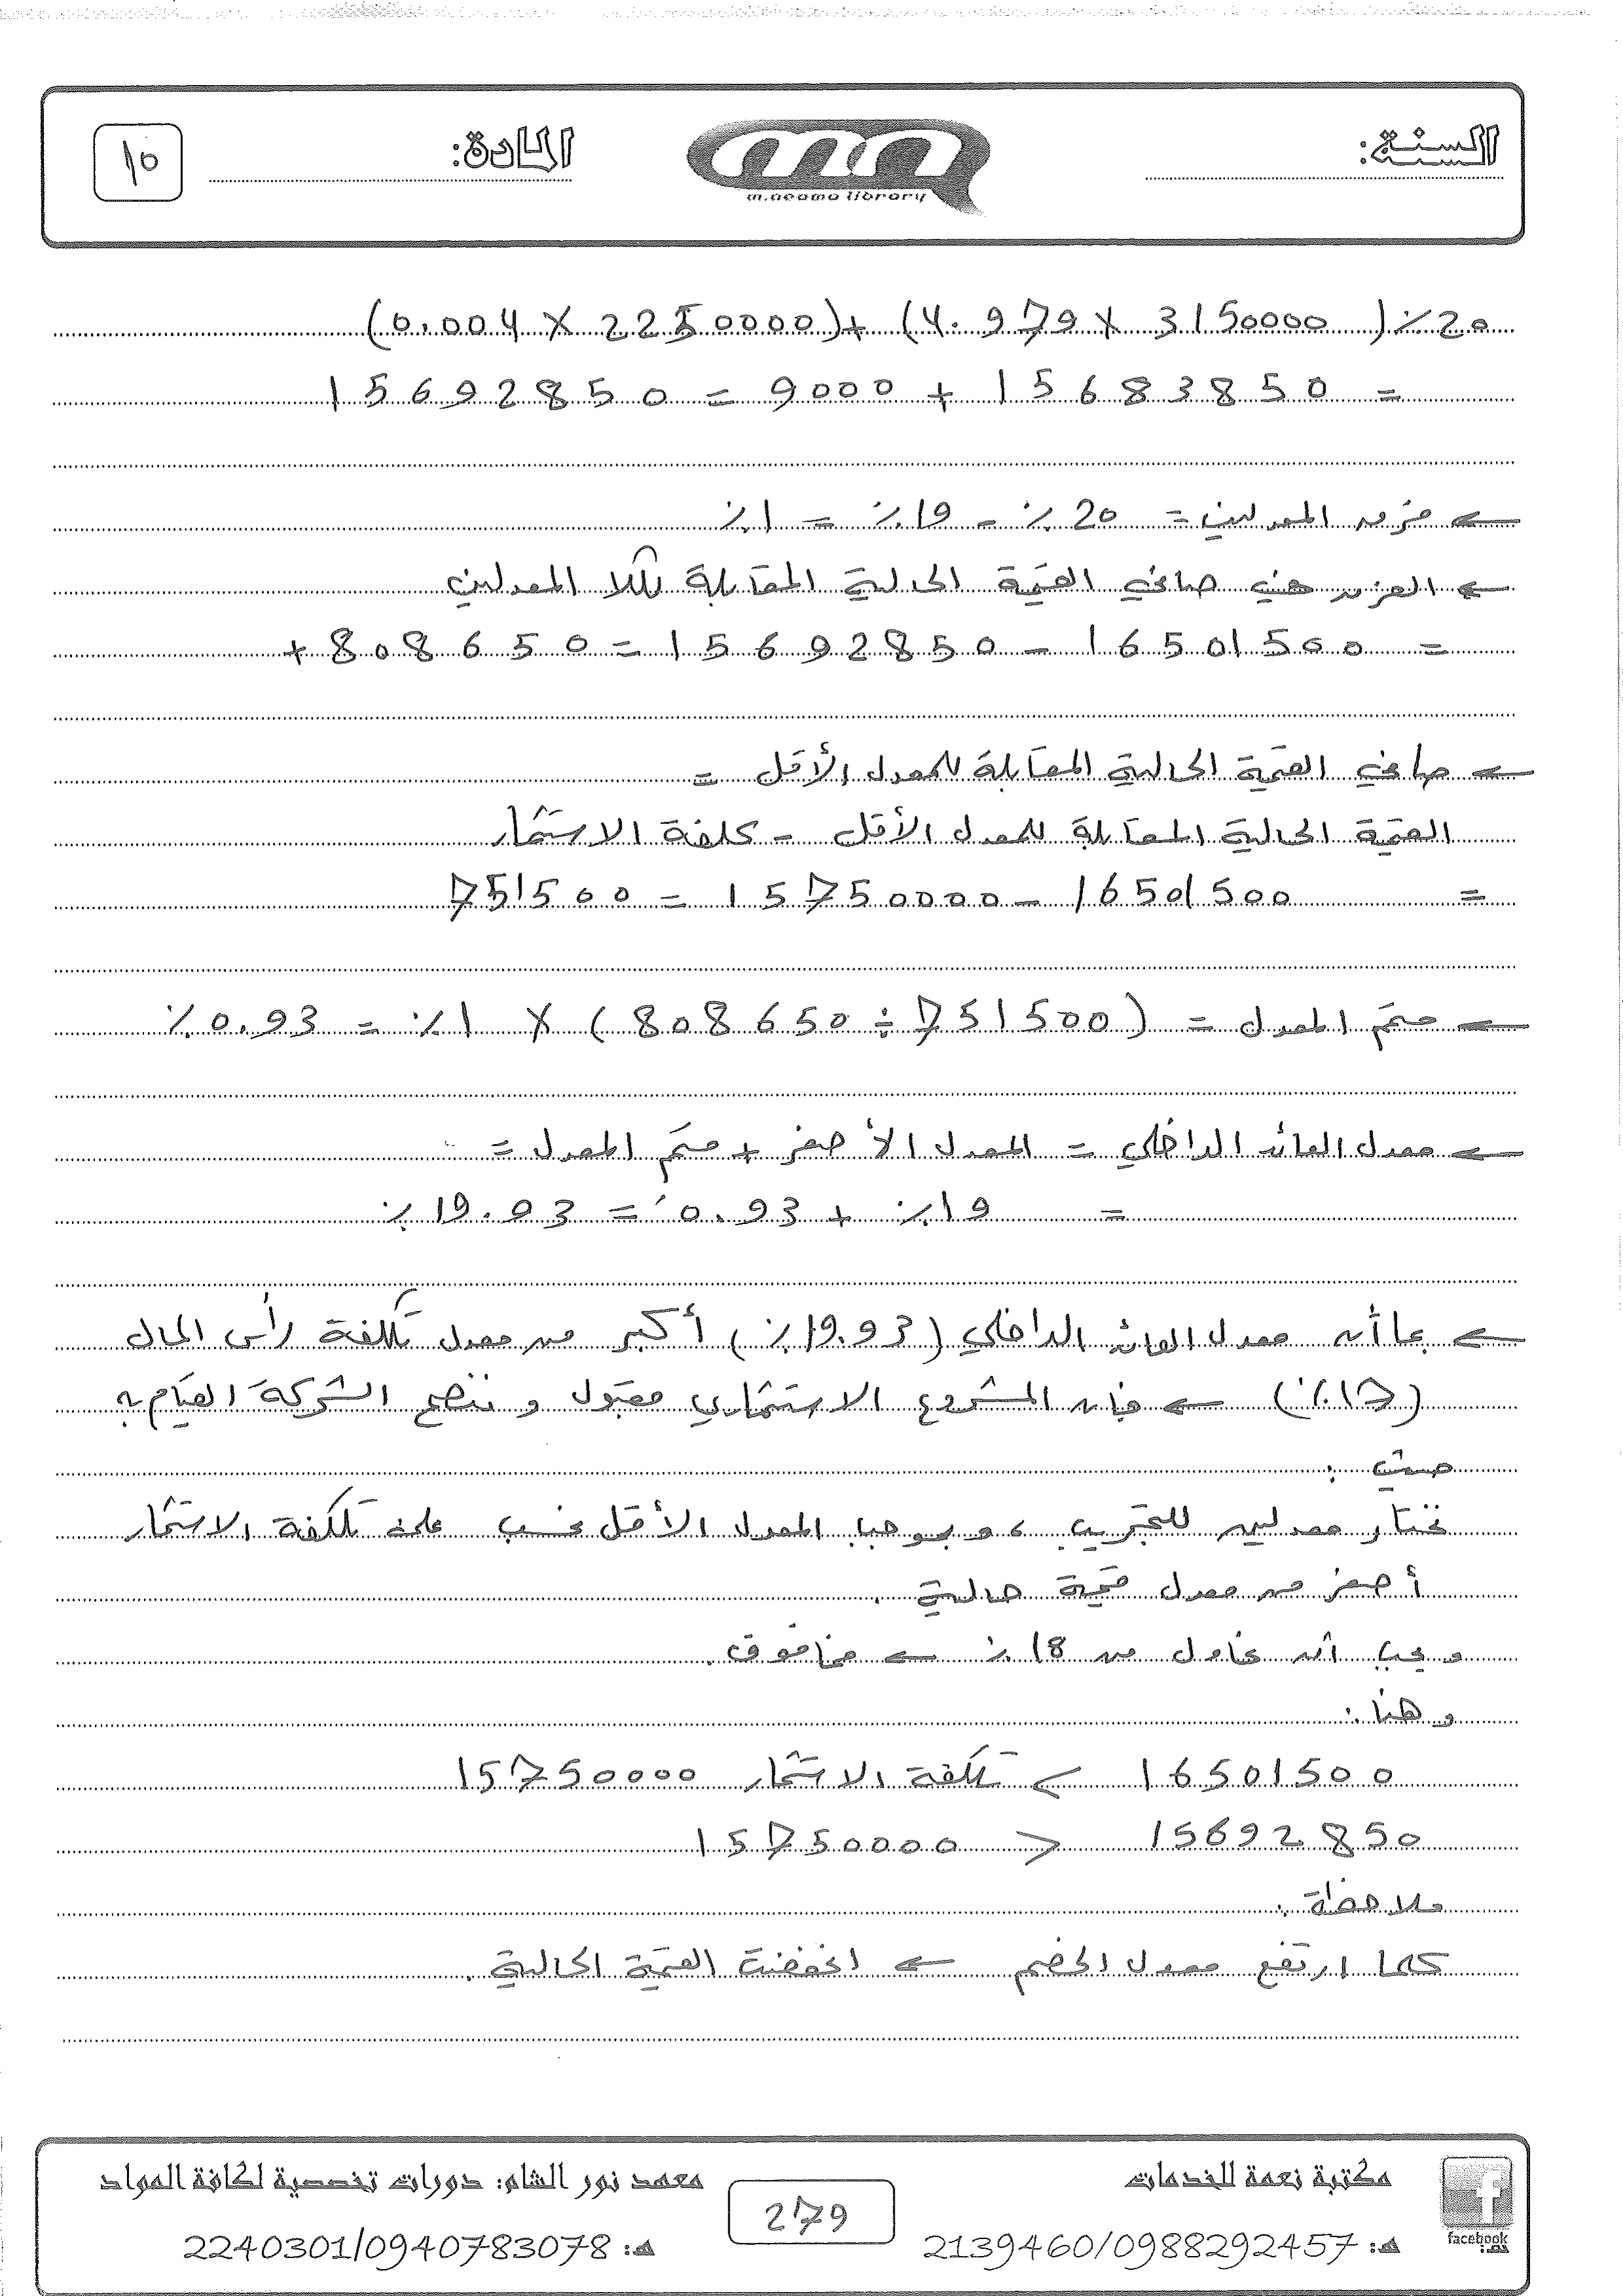 السنة:
m.neama library
المادة:
١٥
20٪ (4.979 × 3150000) + (0.004 × 2250000)
= 15683850 + 9000 = 15692850
← فرق المعدلين = 20٪ - 19٪ = 1٪
← الفرق بين صافي القيمة الحالية المقابلة لكلا المعدلين
= 16501500 - 15692850 = 808650 +
← صافي القيمة الحالية المقابلة للمعدل الأقل =
القيمة الحالية المقابلة للمعدل الأقل - كلفة الاستثمار
= 16501500 - 15750000 = 751500
← متمم المعدل = (751500 ÷ 808650) × 1٪ = 0.93٪
← معدل العائد الداخلي = المعدل الأصغر + متمم المعدل =
= 19٪ + 0.93 = 19.93٪
← بما أن معدل العائد الداخلي (19.93٪) أكبر من معدل تكلفة رأس المال
← فإن المشروع الاستثماري مقبول و ننصح الشركة القيام به
حيث:
نختار معدلين للتجريب، وبموجب المعدل الأقل نحسب تكلفة الاستثمار
أصغر من معدل قيمة حالية.
و يجب أن نحاول من 18٪ ← فما فوق.
و هنا:
16501500 > تكلفة الاستثمار 15750000
15692850 < 15750000
ملاحظة:
كلما ارتفع معدل الخصم ← انخفضت القيمة الحالية.
مكتبة نعمة للخدمات
هـ: 2139460/0988292457
facebook
279
معهد نور الشام: دورات تخصصية لكافة المواد
هـ: 2240301/0940783078